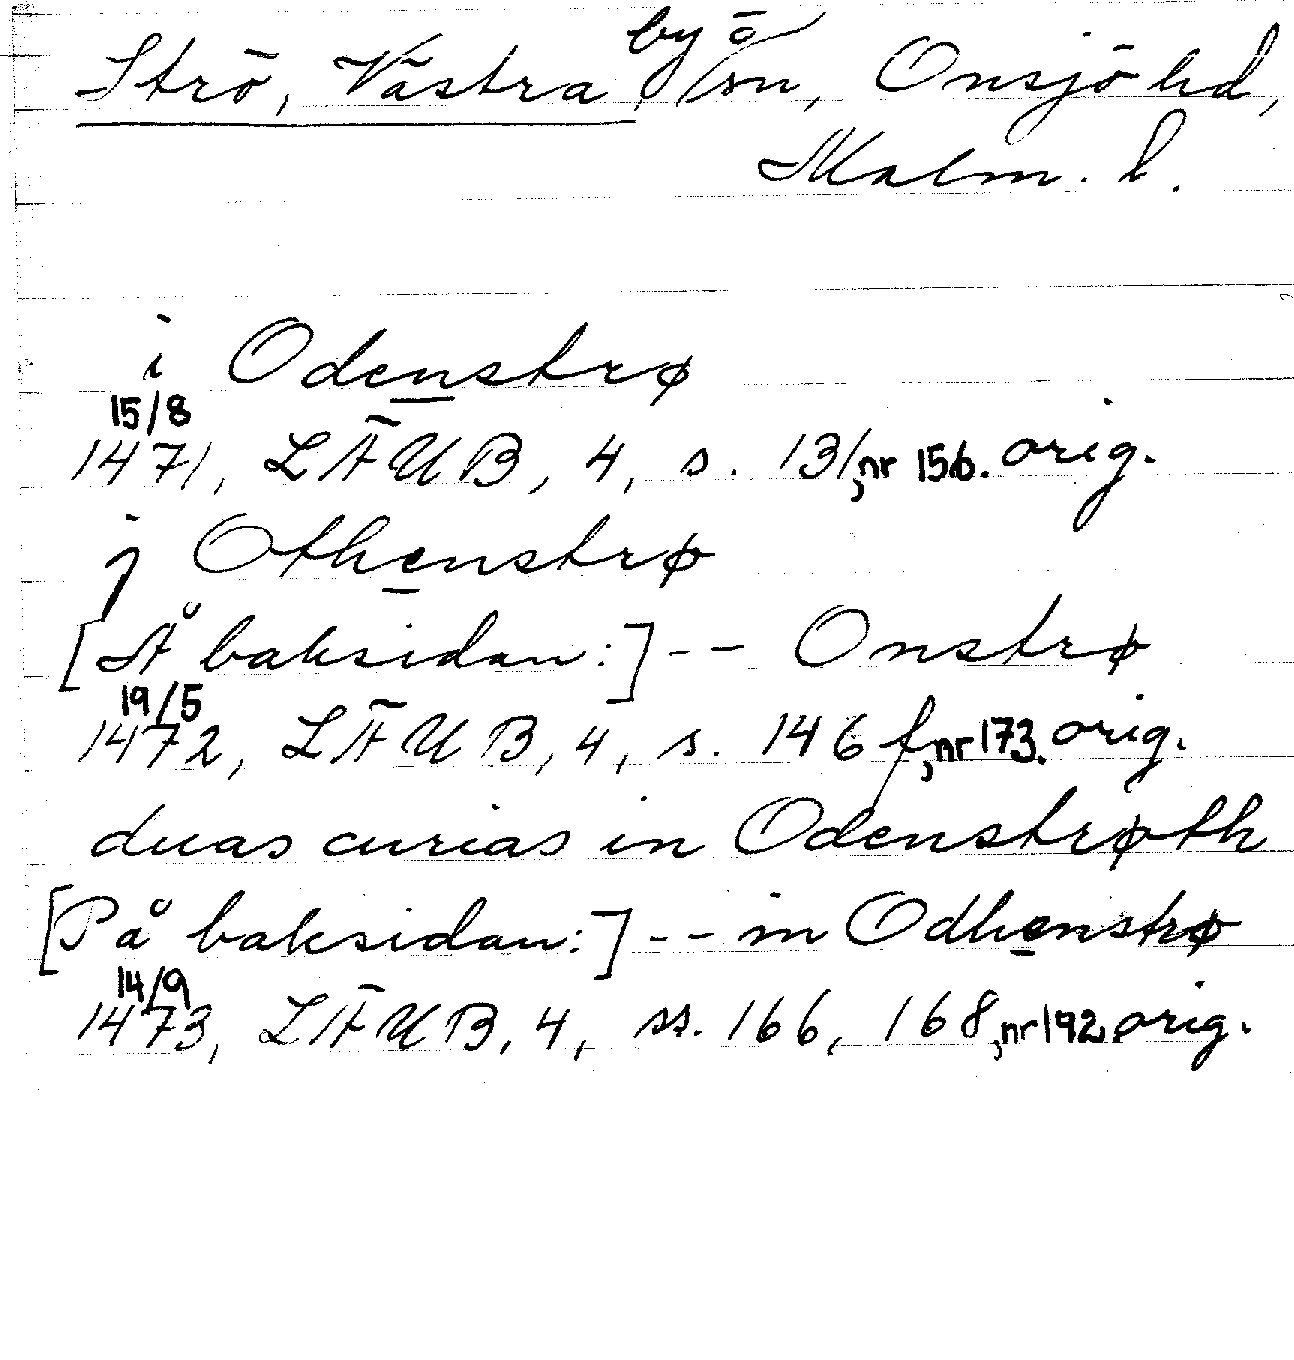 Strö, Västra by o/sn, Onsjö hd,
Malm. l.
i Odenstrø
15/8
1471, LÄUB, 4, s. 131, nr 156. orig.
j Othenstrø
[Å baksidan:] -- Onstrø
19/5
1472, LÄUB, 4, s. 146 f, nr 173. orig.
duas curias in Odenstrøth
[På baksidan:] -- in Odhenstrø
14/9
1473, LÄUB, 4, ss. 166, 168, nr 192. orig.